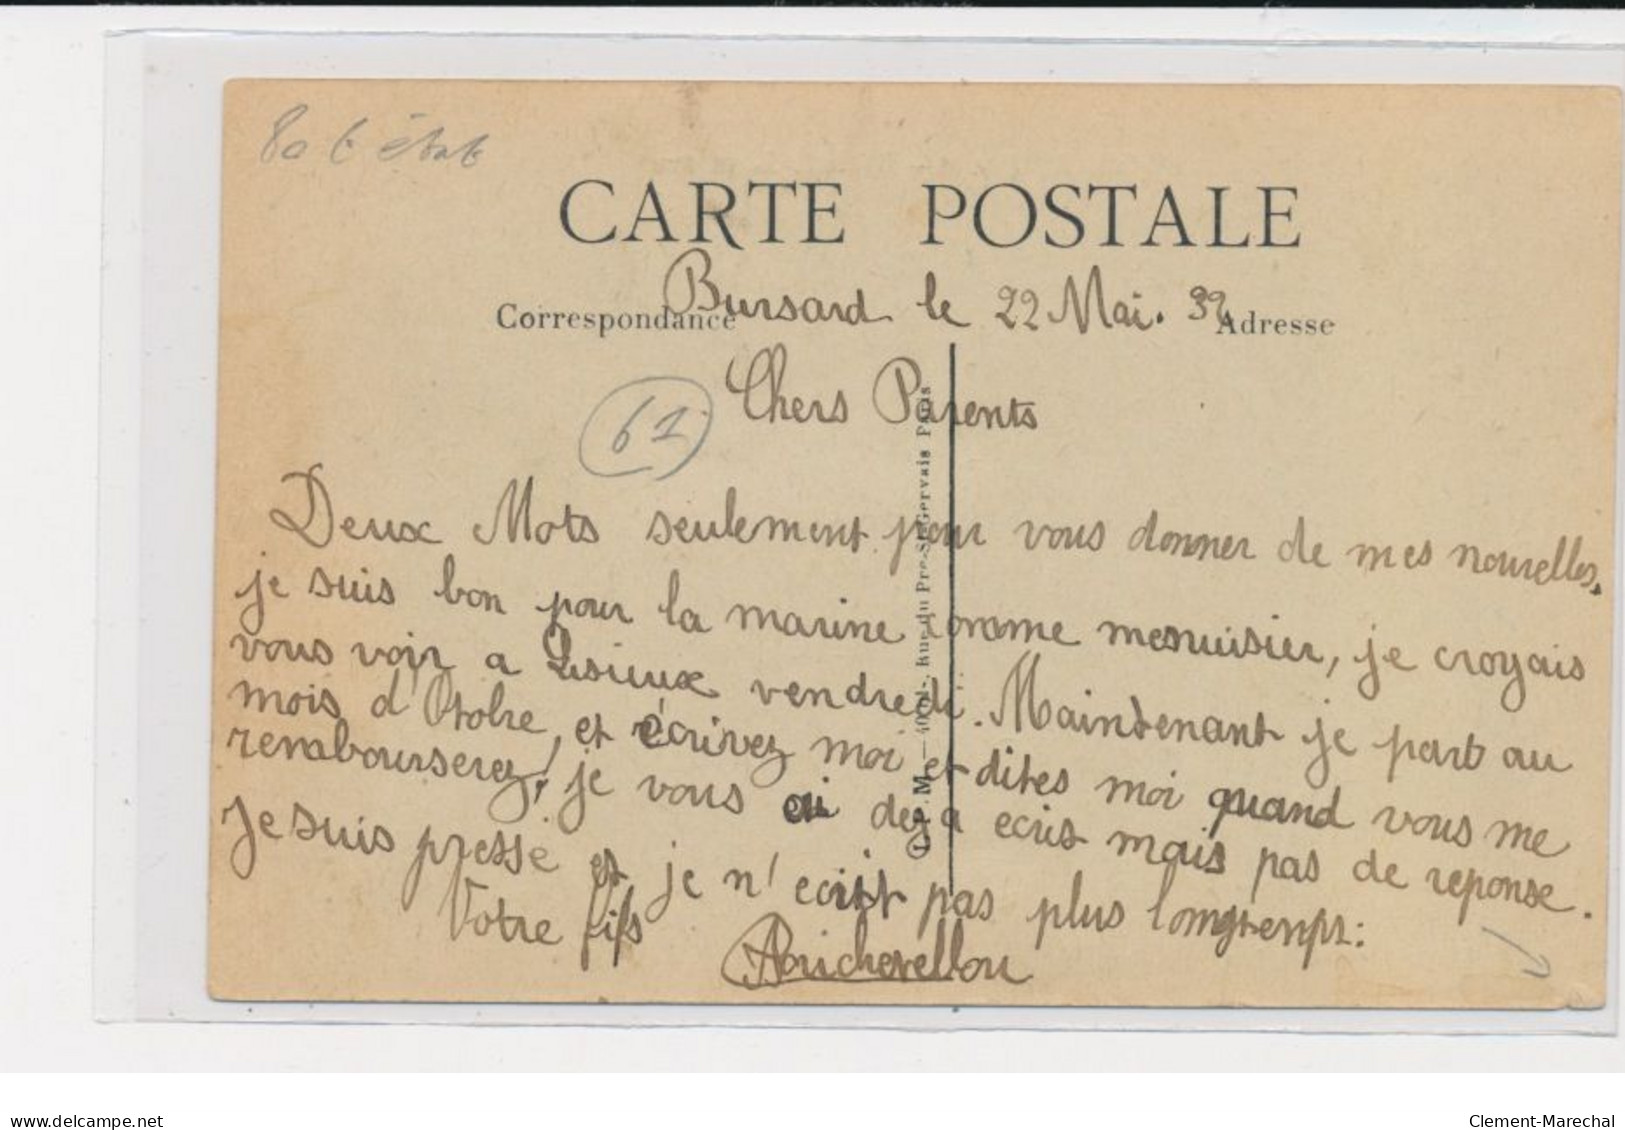 état
CARTE POSTALE
Correspondance
Adresse
Bursard le 22 Mai. 32
Chers Parents
61
Deux Mots seulement pour vous donner de mes nouvelles.
je suis bon pour la marine comme menuisier, je croyais
vous voir a Lisieux vendredi. Maintenant je part au
mois d'Otobre, et écrivez moi et dites moi quand vous me
rembourserez, je vous ai deja ecris mais pas de reponse.
Je suis pressé et je n'ecrit pas plus longtemps:
Votre fils
Rue du Pré-St-Gervais Paris
delcampe.net
Clement-Marechal